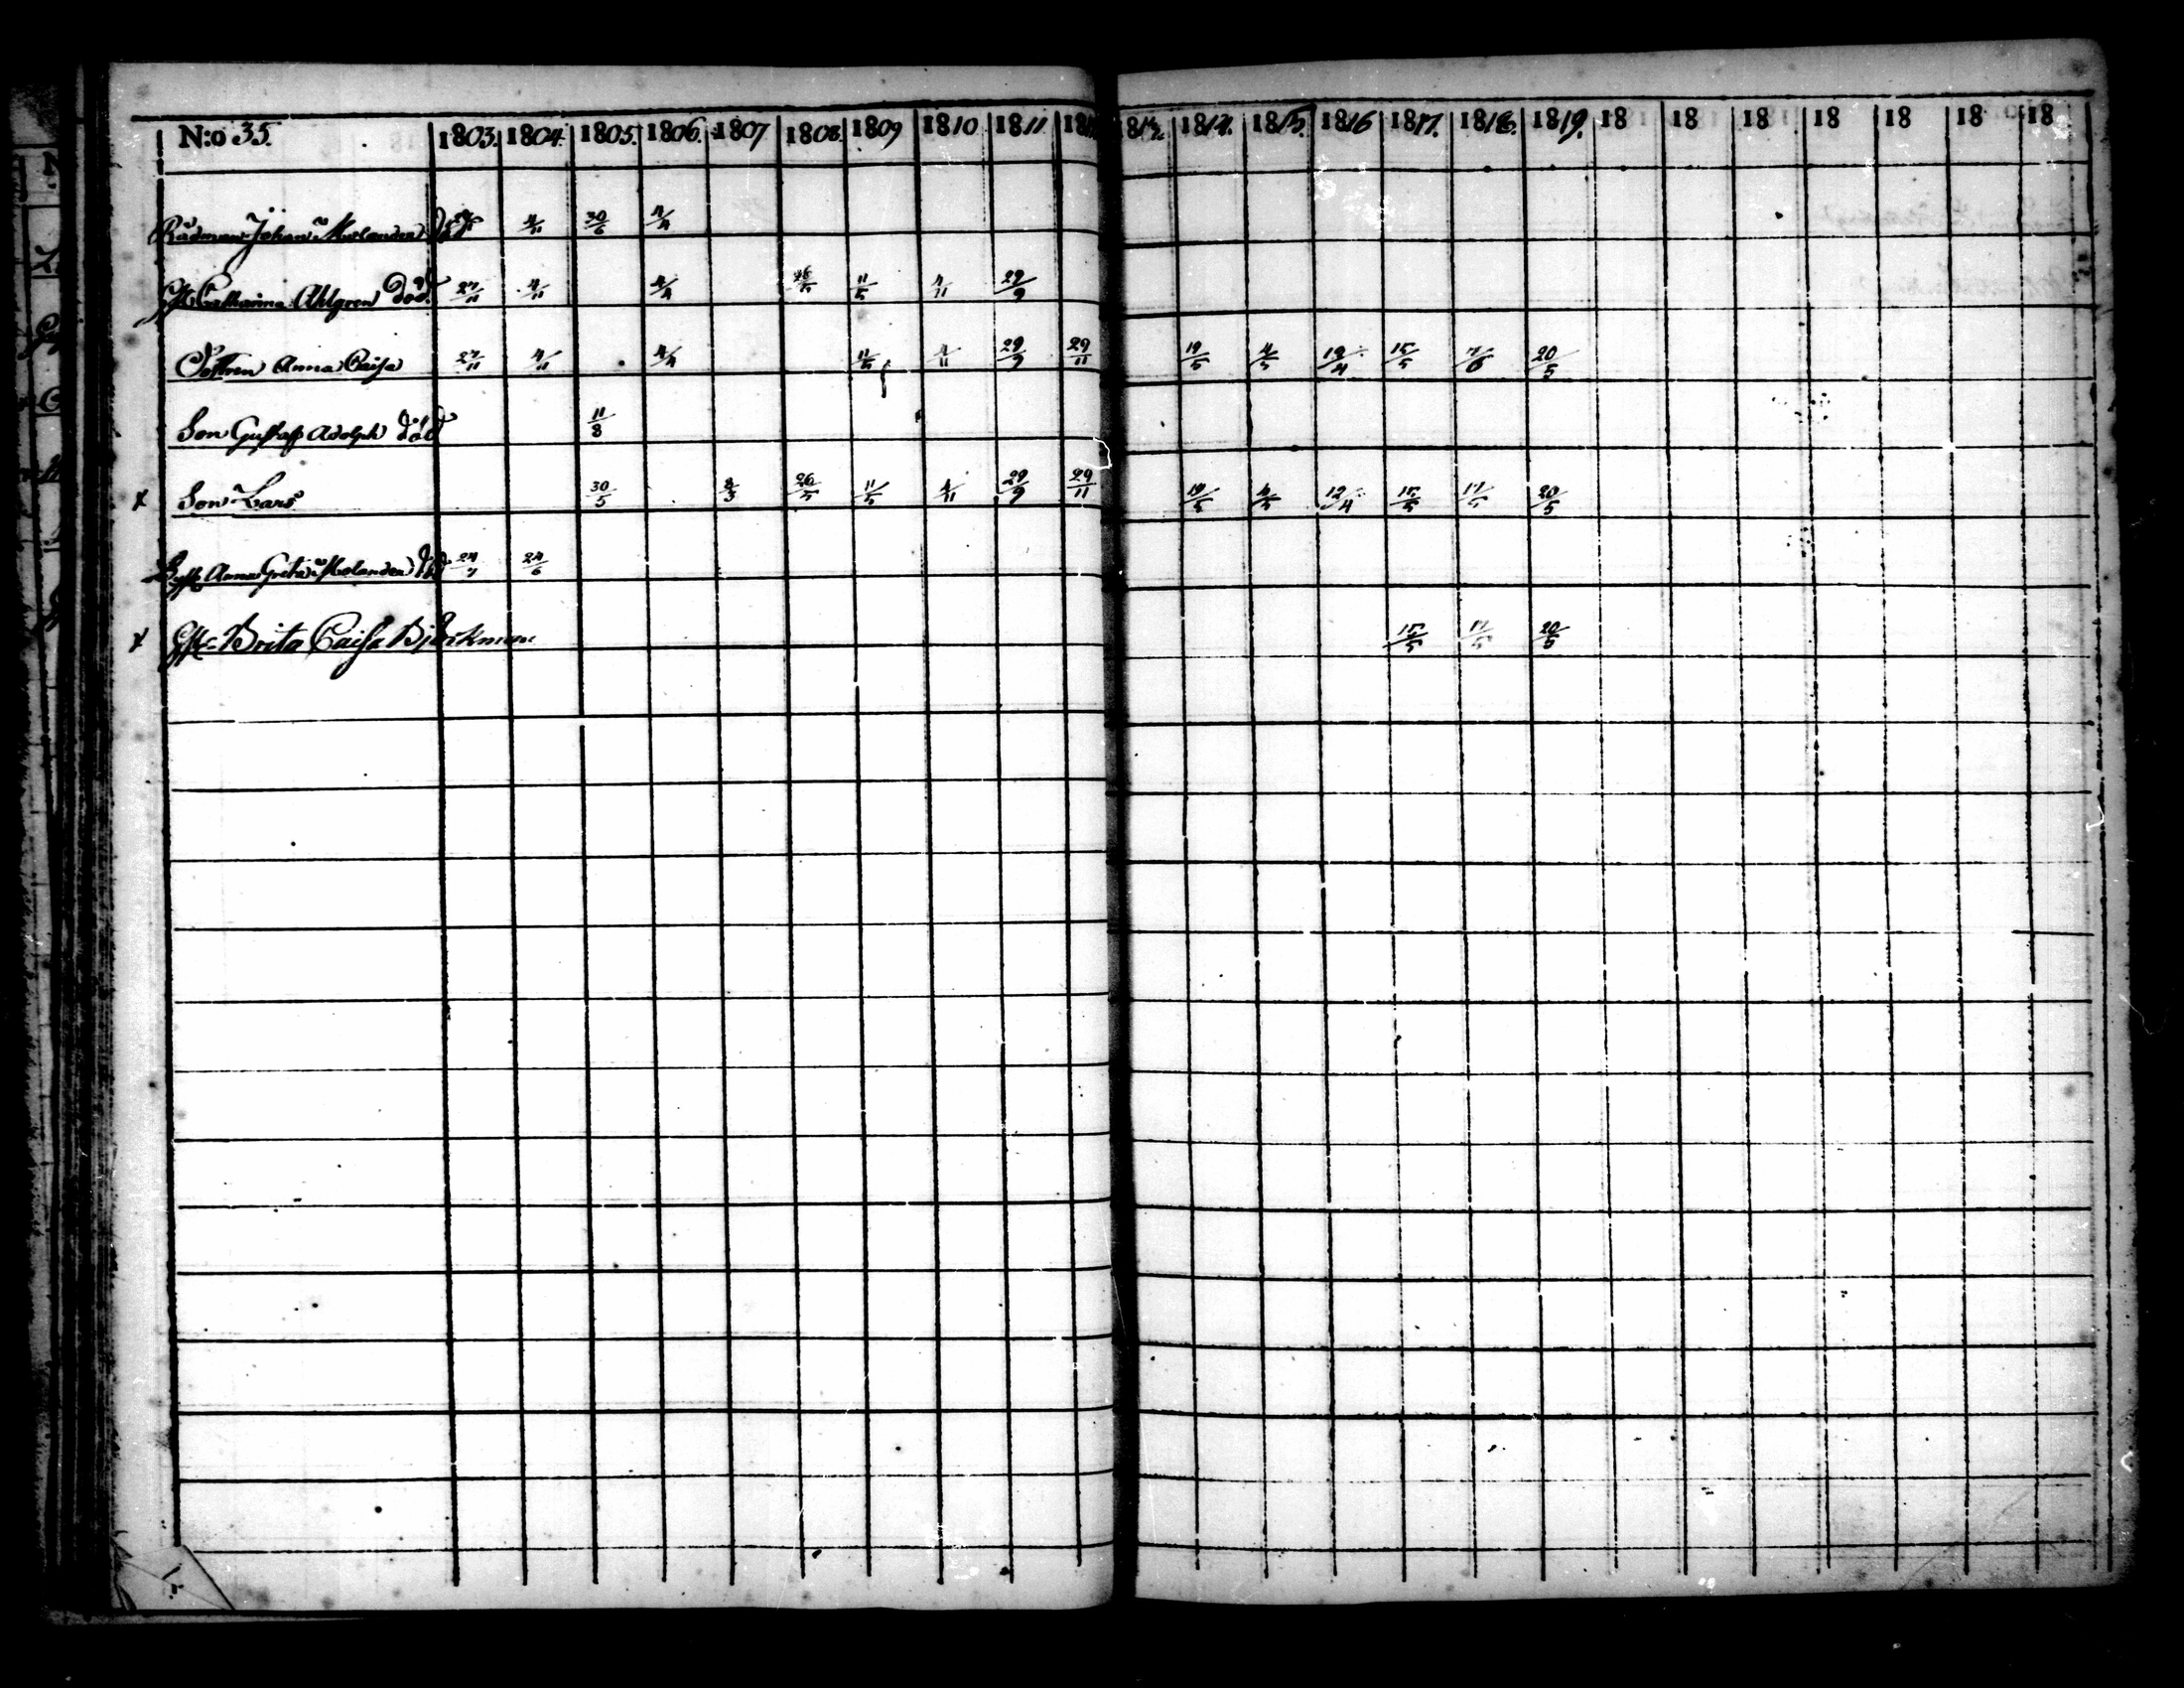 N:o 35. 1803. 1804. 1805. 1806. 1807 1808. 1809 1810 1811 18 1814. 1815. 1816 1817. 1818. 1819. 18 18 18 18 18 18 18
Rådman Johan Molander död 4/11 30/6 4/4
Catharina Ahlgren död. 27/11 4/11 4/4 11/5 4/11 29/9
Anna Caisa 27/11 4/11 4/4 11/5 4/11 29/9 29/11 19/5 4/5 12/4 15/5 7/6 20/5
Son Gustaf Adolph död 11/8
x Son Lars 30/5 26/5 11/5 4/11 29/9 29/11 19/5 4/5 12/4 15/5 17/5 20/5
Anna Greta Molander död 24/7 24/6
x Brita Caisa Björkman 15/5 17/5 20/5